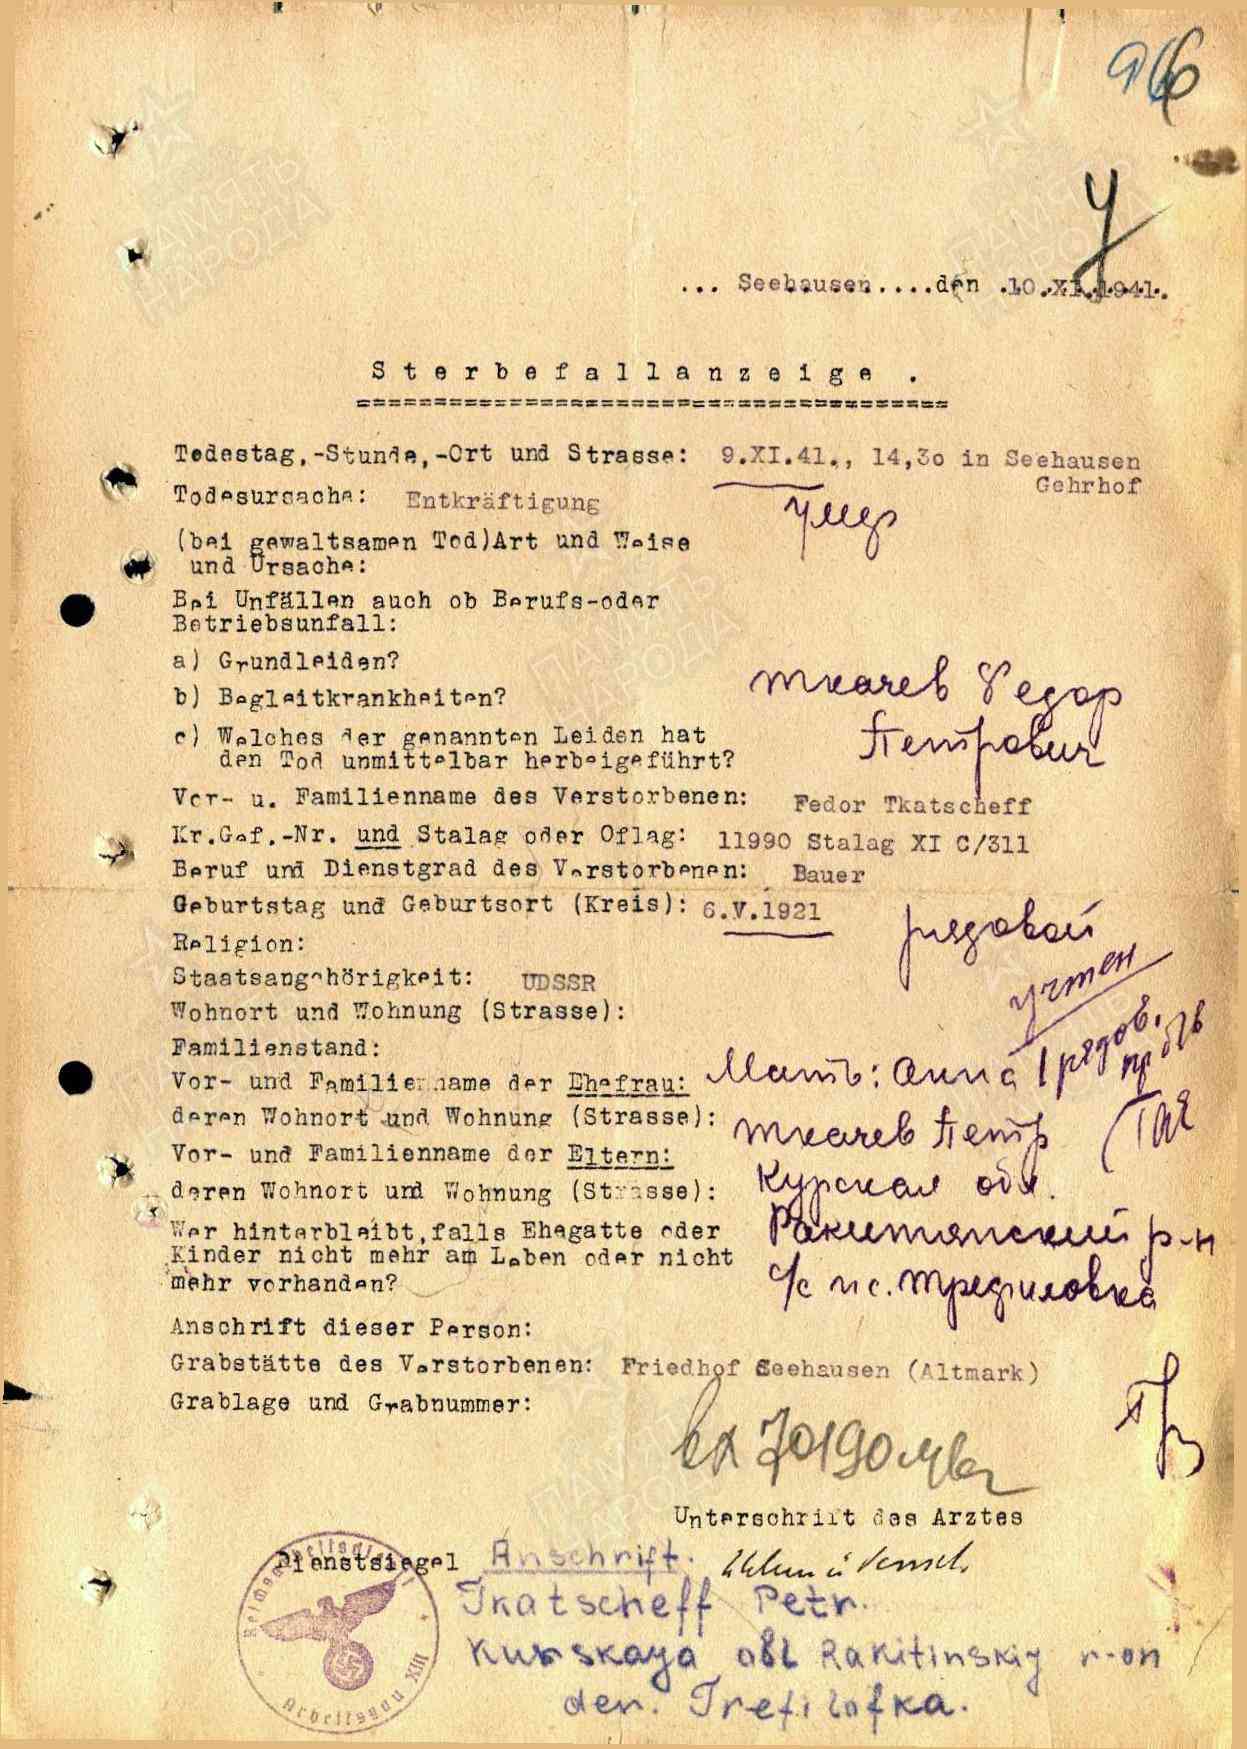 966
У
... Seehausen....den .10.XI.1941.
Sterbefallanzeige .
Todestag,-Stunde,-Ort und Strasse: 9.XI.41., 14,30 in Seehausen
Gehrhof
Todesursache: Entkräftigung
умер
(bei gewaltsamen Tod)Art und Weise
und Ursache:
Bei Unfällen auch ob Berufs-oder
Betriebsunfall:
a) Grundleiden?
b) Begleitkrankheiten?
Ткачев Федор
c) Welches der genannten Leiden hat
Петрович
den Tod unmittelbar herbeigeführt?
Vor- u. Familienname des Verstorbenen: Fedor Tkatscheff
Kr.Gef.-Nr. und Stalag oder Oflag: 11990 Stalag XI C/311
Beruf und Dienstgrad des Verstorbenen: Bauer
Geburtstag und Geburtsort (Kreis): 6.V.1921
рядовой
Religion:
учтен
Staatsangehörigkeit: UDSSR
Wohnort und Wohnung (Strasse):
Familienstand:
Vor- und Familienname der Ehefrau: Мать: Анна
рядов.
deren Wohnort und Wohnung (Strasse): Ткачев Петр
Vor- und Familienname der Eltern:
deren Wohnort und Wohnung (Strasse): Курская обл.
Wer hinterbleibt,falls Ehegatte oder Ракитянский р-н
Kinder nicht mehr am Leben oder nicht
mehr vorhanden? с/с п с. Трефиловка
Anschrift dieser Person:
Grabstätte des Verstorbenen: Friedhof Seehausen (Altmark)
Grablage und Grabnummer:
вх 70190
Unterschrift des Arztes
Dienstsiegel Anschrift.
Tkatscheff Petr.
Kurskaya obl Rakitinskiy r-on
der. Trefilofka.
Arbeitsgau XIII
ПАМЯТЬ НАРОДА
ПАМЯТЬ НАРОДА
ПАМЯТЬ НАРОДА
ПАМЯТЬ НАРОДА